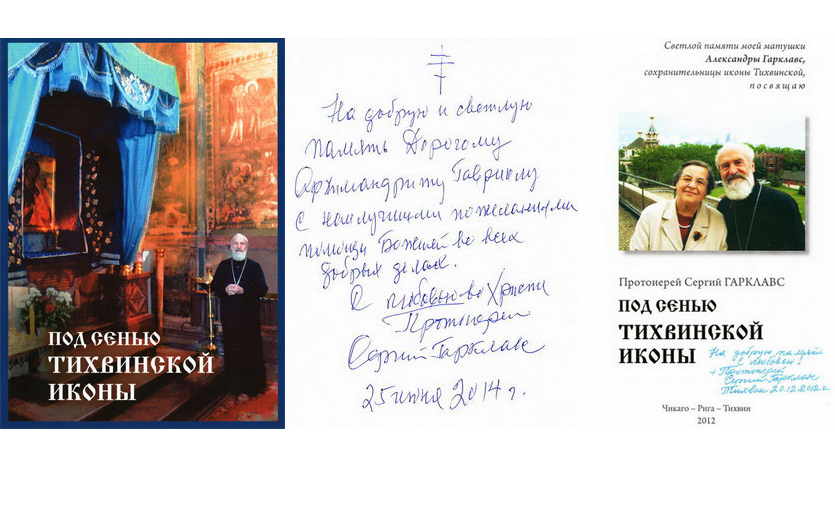 ПОД СЕНЬЮ
ТИХВИНСКОЙ
ИКОНЫ
На добрую и светлую
память Дорогому
Архимандриту Гавриилу
с наилучшими пожеланиями
помощи Божией во всех
добрых делах.
С любовью во Христе
Протоиерей
Сергий Гарклавс
25 июня 2014 г.
Светлой памяти моей матушки
Александры Гарклавс,
сохранительницы иконы Тихвинской,
посвящаю
Протоиерей Сергий ГАРКЛАВС
ПОД СЕНЬЮ
ТИХВИНСКОЙ
ИКОНЫ
На добрую память
с любовью!
+ Протоиерей
Сергий Гарклавс
Тихвин 20.12.2012 г.
Чикаго – Рига – Тихвин
2012